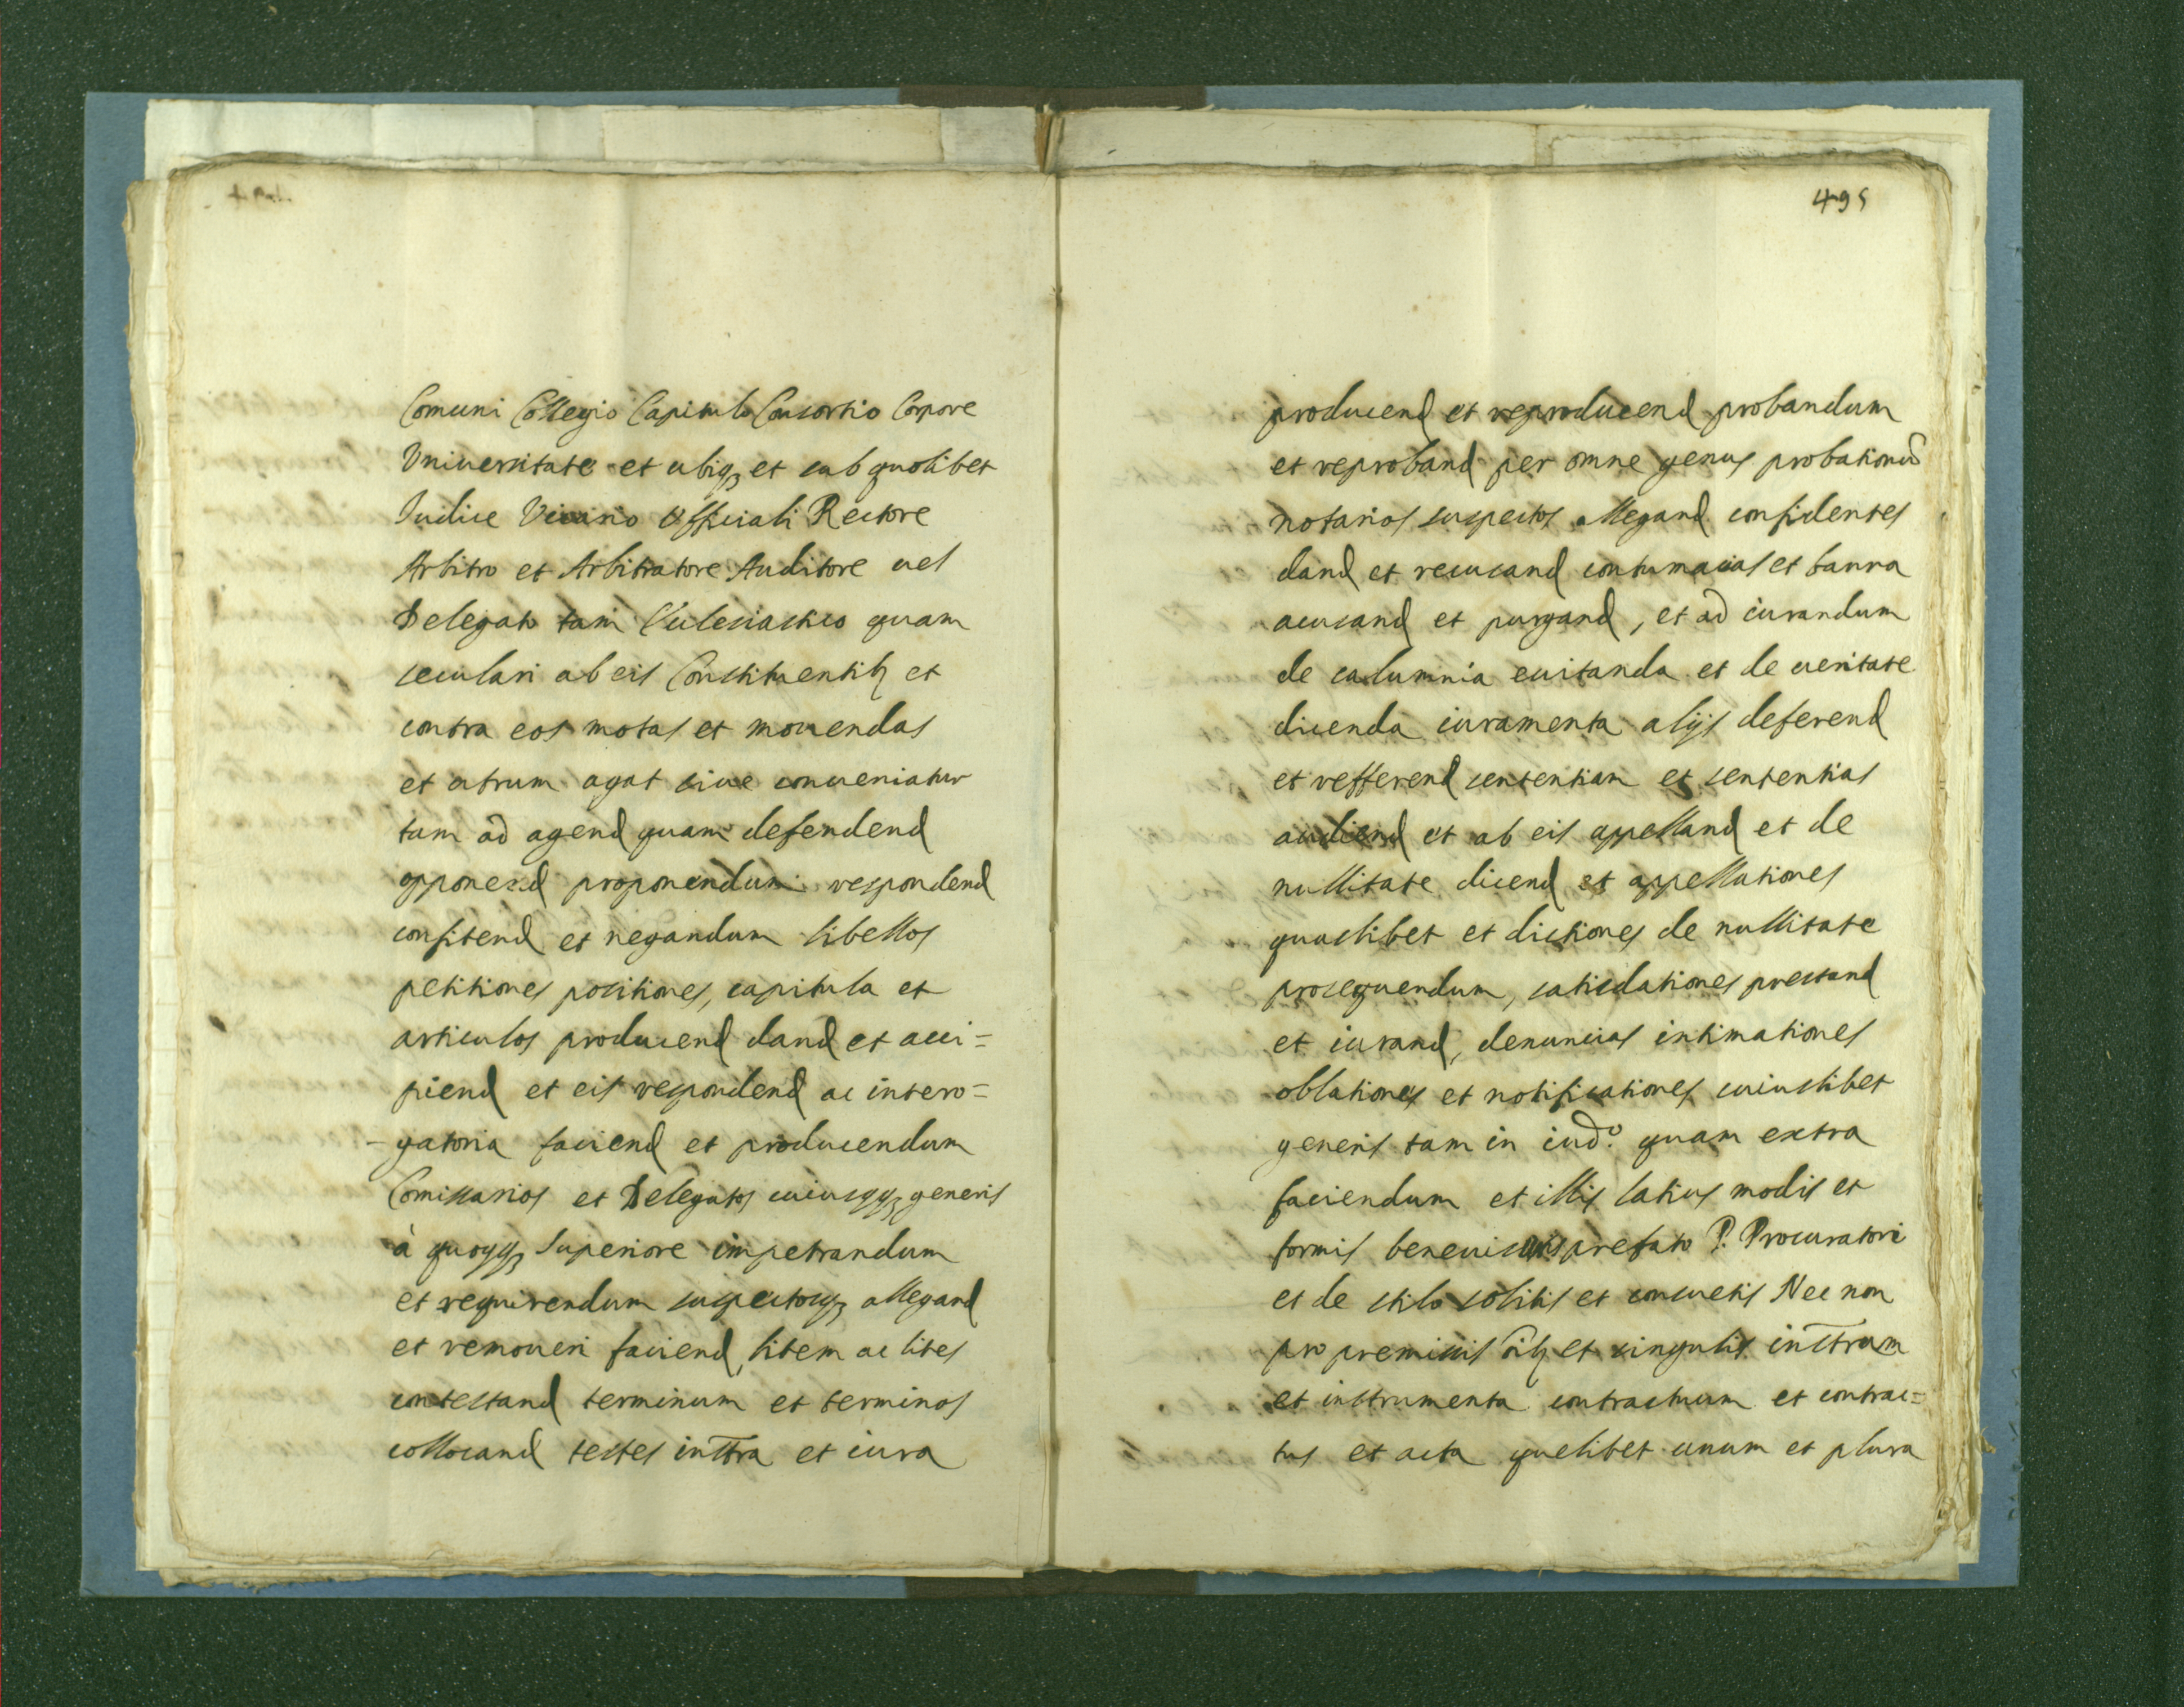 Comuni Collegio Capitulo Consortio Corpore
Vniuersitate et ubiq₃ et sub quolibet
Iudice Vicario Officiali Rectore
Arbitro et Arbitratore Auditore uel
Delegato tam Ecclesiastico quam
seculari ab eis Constituentib₃ et
contra eos motas et mouendas
et utrum agat siue conueniatur
tam ad agend quam defendend
opponend proponendum respondend
confitend et negandum libellos
petitiones positiones, capitula et
articulos producend dand et acci=
piend et eis respondend ac intero=
-gatoria faciend et producendum
Comissarios et Delegatos cuiusqq₃ generis
à quoqq₃ Superiore impetrandum
et requirendum suspectosq₃ allegand
et remoueri faciend, litem ac lites
contestand terminum et terminos
collocand testes inttra et iura
495
producend et reproducend probandum
et reproband per omne genus probationū
notarios suspectos allegand confidentes
dand et recusand contumacias et banna
acusand et purgand, et ad iurandum
de calumnia euitanda et de ueritate
dicenda iuramenta alijs deferend
et refferend sententiam et sententias
audiend et ab eis appelland et de
nullitate dicend et appellationes
quaslibet et dictiones de nullitate
prosequendum, satisdationes prestand
et iurand, denuncias intimationes
oblationes et notificationes cuiuslibet
generis tam in iud.º quam extra
faciendum et illis latius modis et
formis beneuisis prefato P. Procuratori
et de stilo solitis et consuetis Nec non
pro premissis oīb₃ et singulis inttrum
et instrumenta contractuum et contrac=
tus et acta quelibet unum et plura